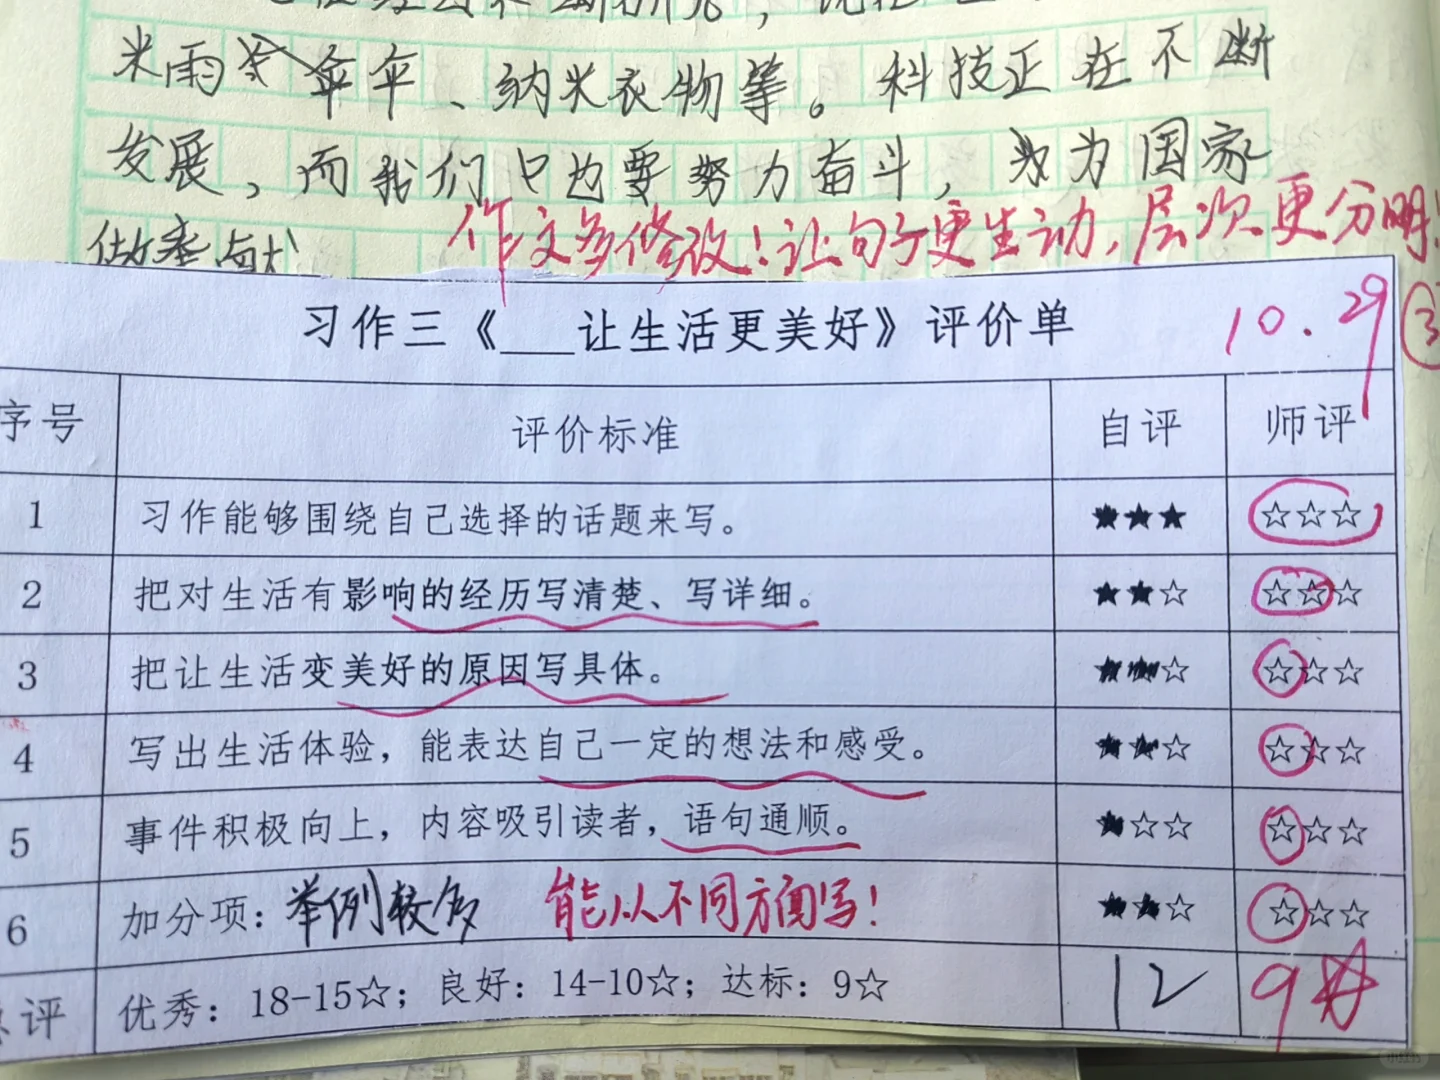 米雨伞伞、纳米衣物等。科技正在不断
发展，而我们口也要努力奋斗，为国家
做奉献
作文多修改！让句子更生动，层次更分明！
习作三《___让生活更美好》评价单
10.29
③
序号 评价标准 自评 师评
1 习作能够围绕自己选择的话题来写。 ★★★ ☆☆☆
2 把对生活有影响的经历写清楚、写详细。 ★★☆ ☆☆☆
3 把让生活变美好的原因写具体。 ★★☆ ☆☆☆
4 写出生活体验，能表达自己一定的想法和感受。 ★★☆ ☆☆☆
5 事件积极向上，内容吸引读者，语句通顺。 ★☆☆ ☆☆☆
6 加分项：举例较多 能从不同方面写！ ★★☆ ☆☆☆
评 优秀：18-15☆；良好：14-10☆；达标：9☆ 12 9☆